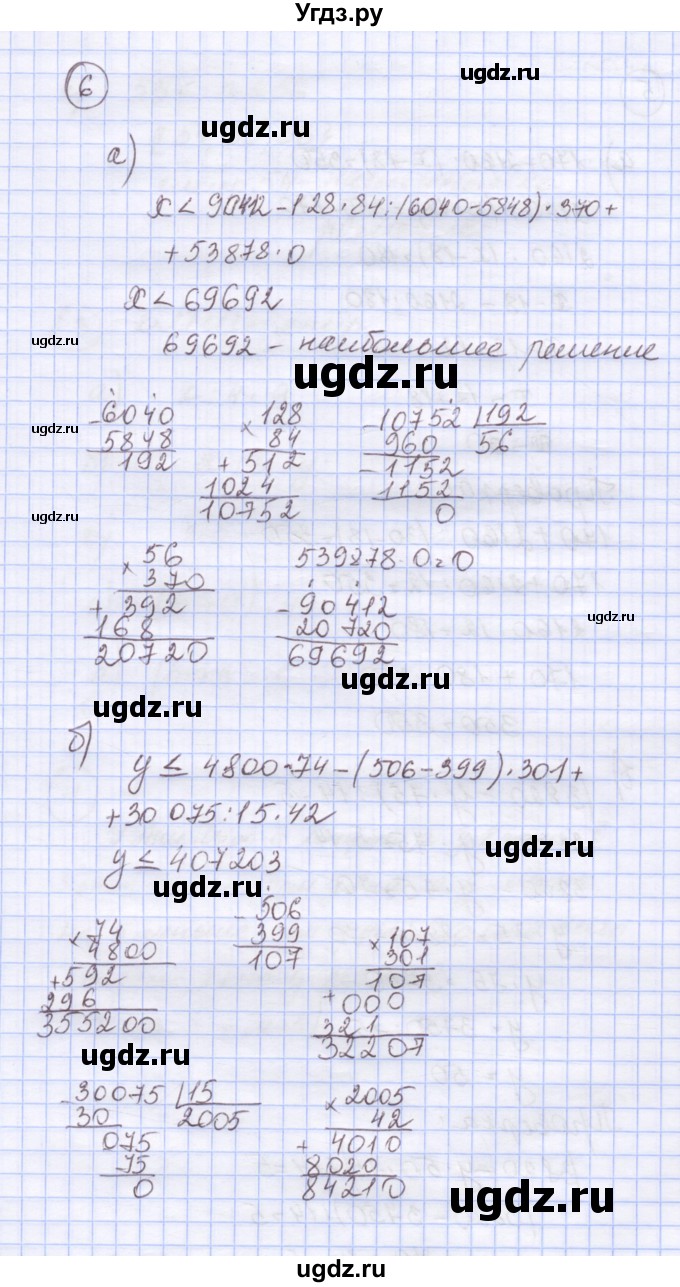 Угдз.ру
ugdz.ru
6
ugdz.ru
а)
x < 90412 - 128 · 84 : (6040 - 5848) · 370 +
+ 53878 · 0
x < 69692
ugdz.ru
69692 - наибольшее решение
ugdz.ru
- 6040
5848
192
× 128
84
+ 512
1024
10752
- 10752 | 192
960 56
- 1152
1152
0
ugdz.ru
ugdz.ru
× 56
370
+ 392
168
20720
539278 · 0 = 0
- 90412
20720
69692
ugdz.ru
ugdz.ru
ugdz.ru
б)
y ≤ 4800 · 74 - (506 - 399) · 301 +
+ 30 075 : 15 · 42
y ≤ 407203
ugdz.ru
ugdz.ru
× 74
4800
+ 592
296
355200
- 506
399
107
× 107
301
107
+ 000
321
32207
ugdz.ru
- 30075 | 15
30 2005
075
- 75
0
× 2005
42
+ 4010
8020
84210
ugdz.ru
ugdz.ru